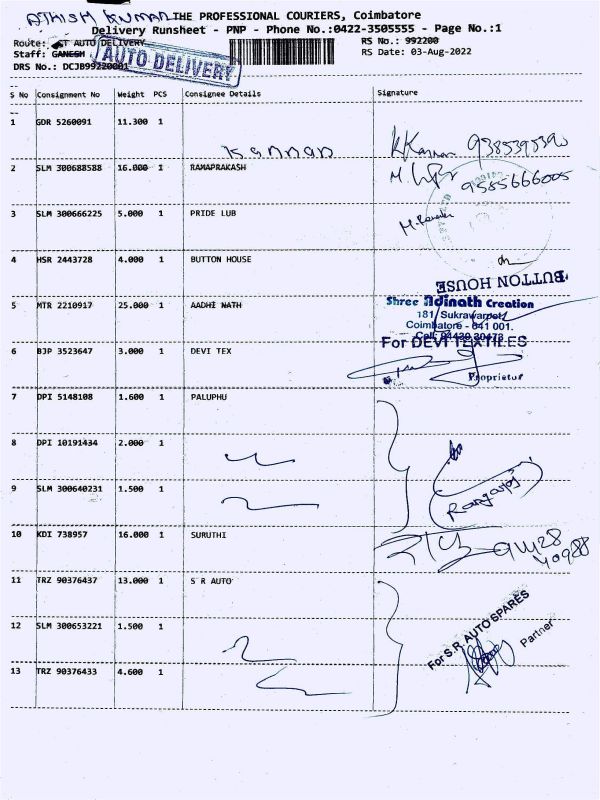 ATHISH KUMAR THE PROFESSIONAL COURIERS, Coimbatore
Delivery Runsheet - PNP - Phone No.:0422-3505555 - Page No.:1
Route: ST AUTO DELIVERY RS No.: 992200
Staff: GANESH RS Date: 03-Aug-2022
AUTO DELIVERY
DRS No.: DCJB99220001
S No Consignment No Weight PCS Consignee Details Signature
1 GDR 5260091 11.300 1
Kannan K Kannan 9385395390
2 SLM 300688588 16.000 1 RAMAPRAKASH
9585666005
3 SLM 300666225 5.000 1 PRIDE LUB
4 HSR 2443728 4.000 1 BUTTON HOUSE
BUTTON HOUSE
5 MTR 2210917 25.000 1 AADHI NATH
Shree Adinath Creation
181, Sukrawarpet,
Coimbatore - 641 001.
Cell: 94430 30473
For DEVI TEXTILES
6 BJP 3523647 3.000 1 DEVI TEX
Proprietor
7 DPI 5148108 1.600 1 PALUPHU
8 DPI 10191434 2.000 1
9 SLM 300640231 1.500 1
Rangaraj
10 KDI 738957 16.000 1 SURUTHI
11 TRZ 90376437 13.000 1 S R AUTO
For S.R AUTO SPARES
Partner
12 SLM 300653221 1.500 1
13 TRZ 90376433 4.600 1